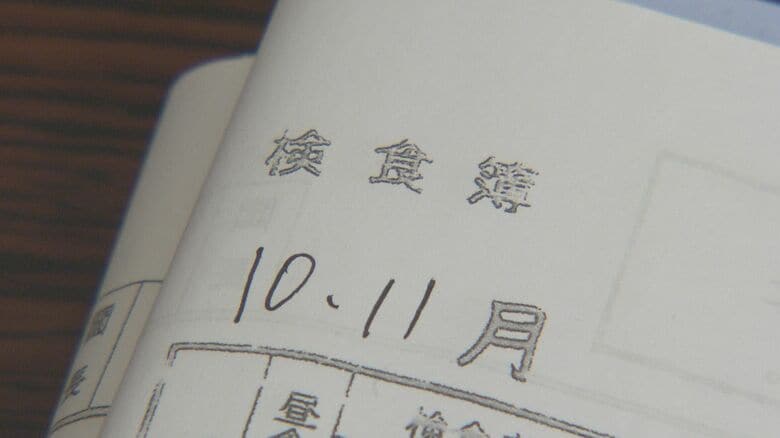 検食簿
10、11月
園長
昼食
検食